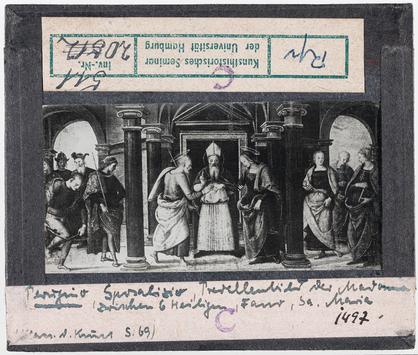 Rp
Kunsthistorisches Seminar
der Universität Hamburg
Inv.-Nr.
20512
511
Perugino Sposalizio Predellenbild der Madonna
zwischen 6 Heiligen, Fano, Sa. Maria
1497.
d. Kunst S. 69)